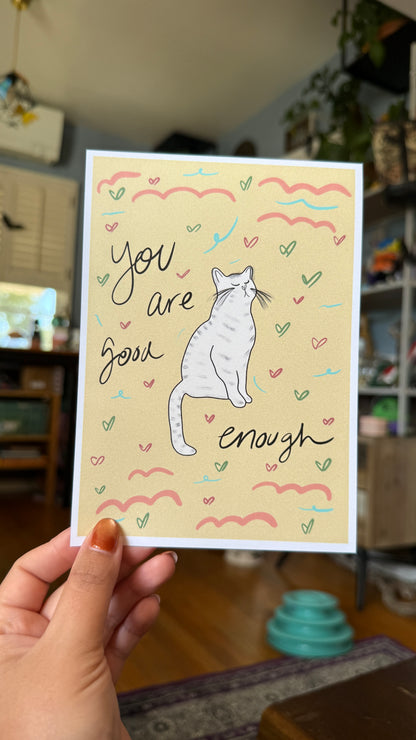 You
are
good
enough